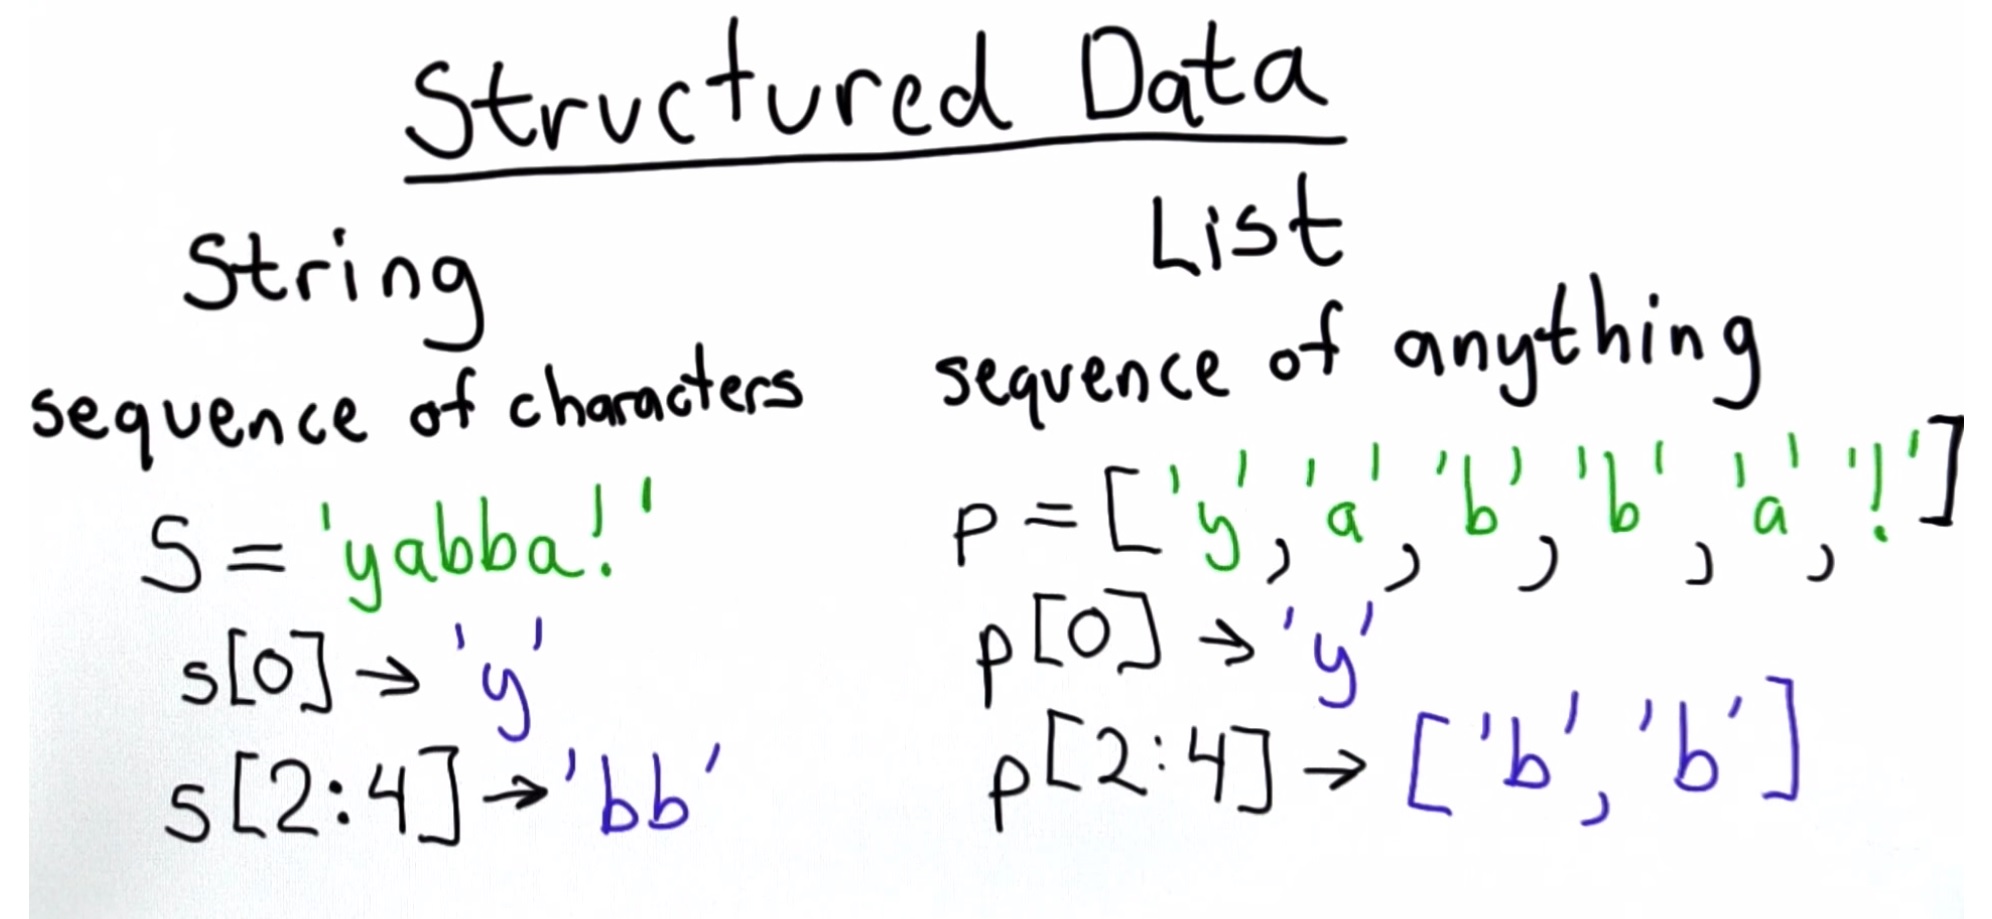 Structured Data
String
sequence of characters
S = 'yabba!'
s[0] → 'y'
s[2:4] → 'bb'
List
sequence of anything
p = ['y', 'a', 'b', 'b', 'a', '!']
p[0] → 'y'
p[2:4] → ['b', 'b']